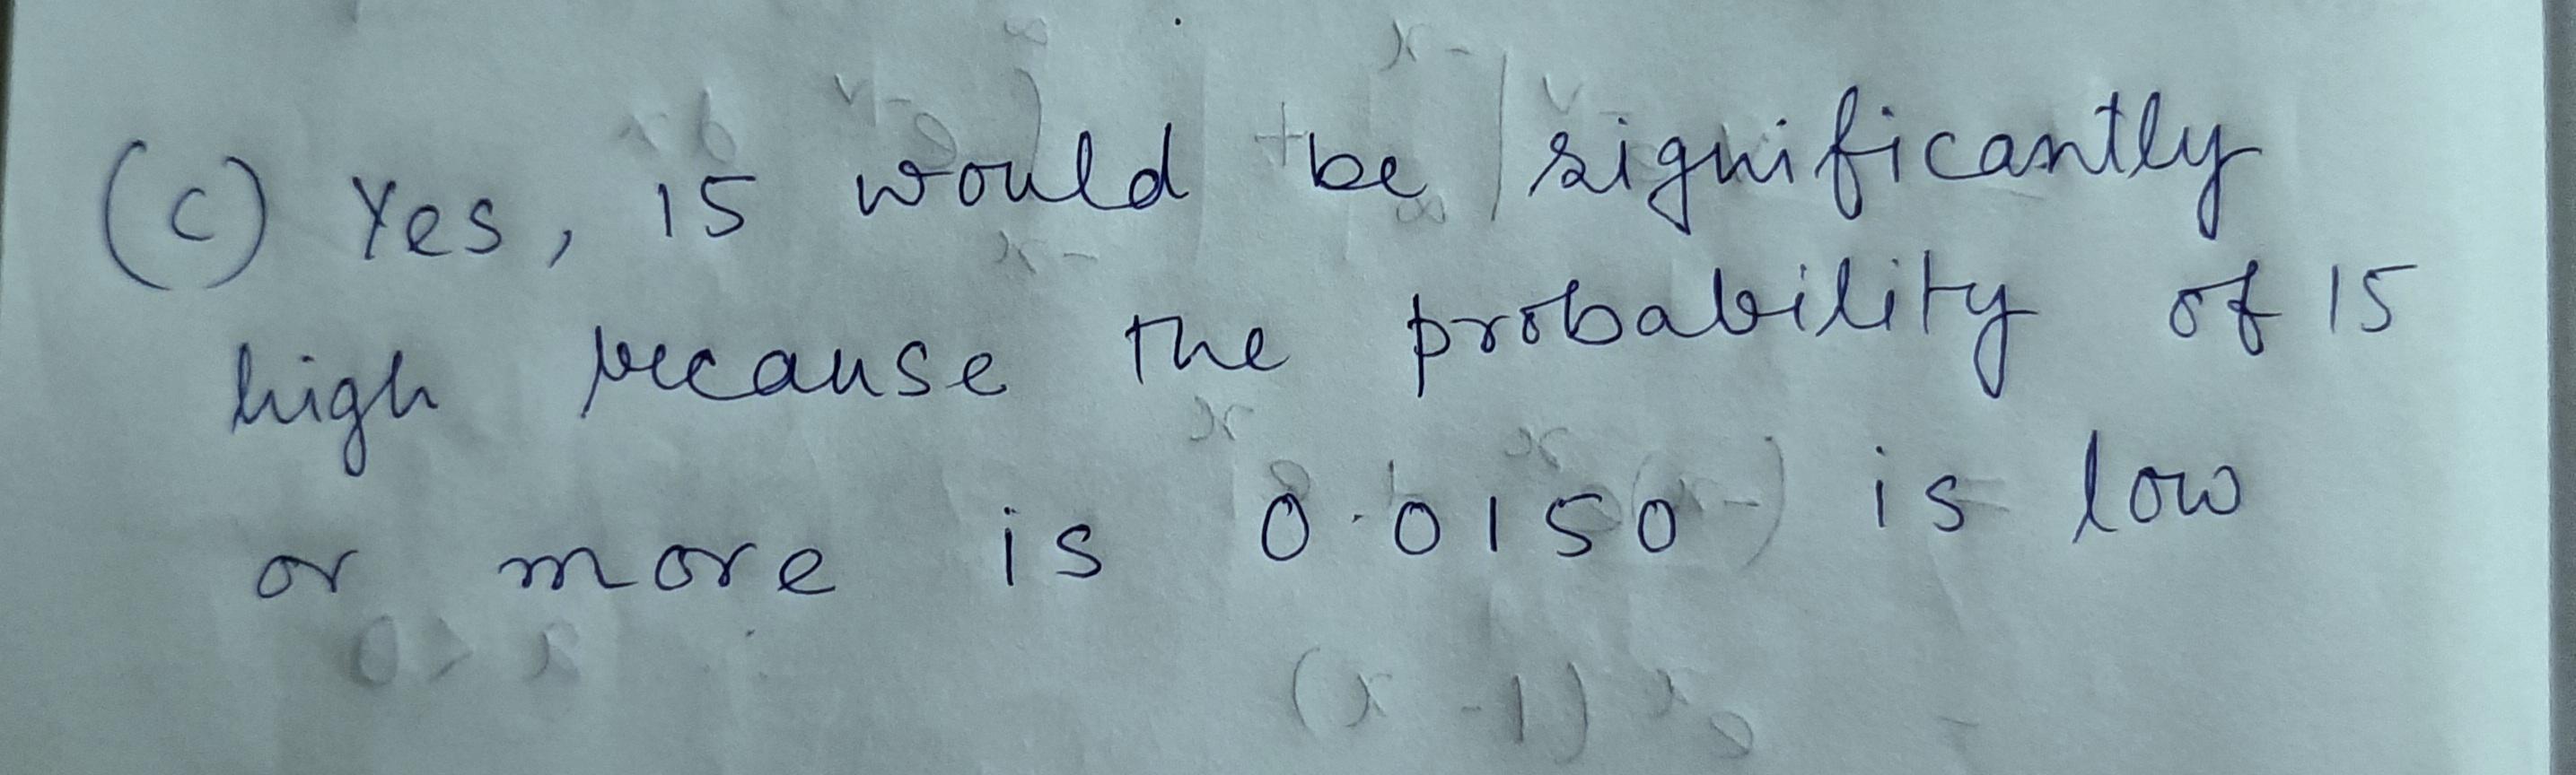 (c) Yes, 15 would be significantly
high because the probability of 15
or more is 0.0150 is low